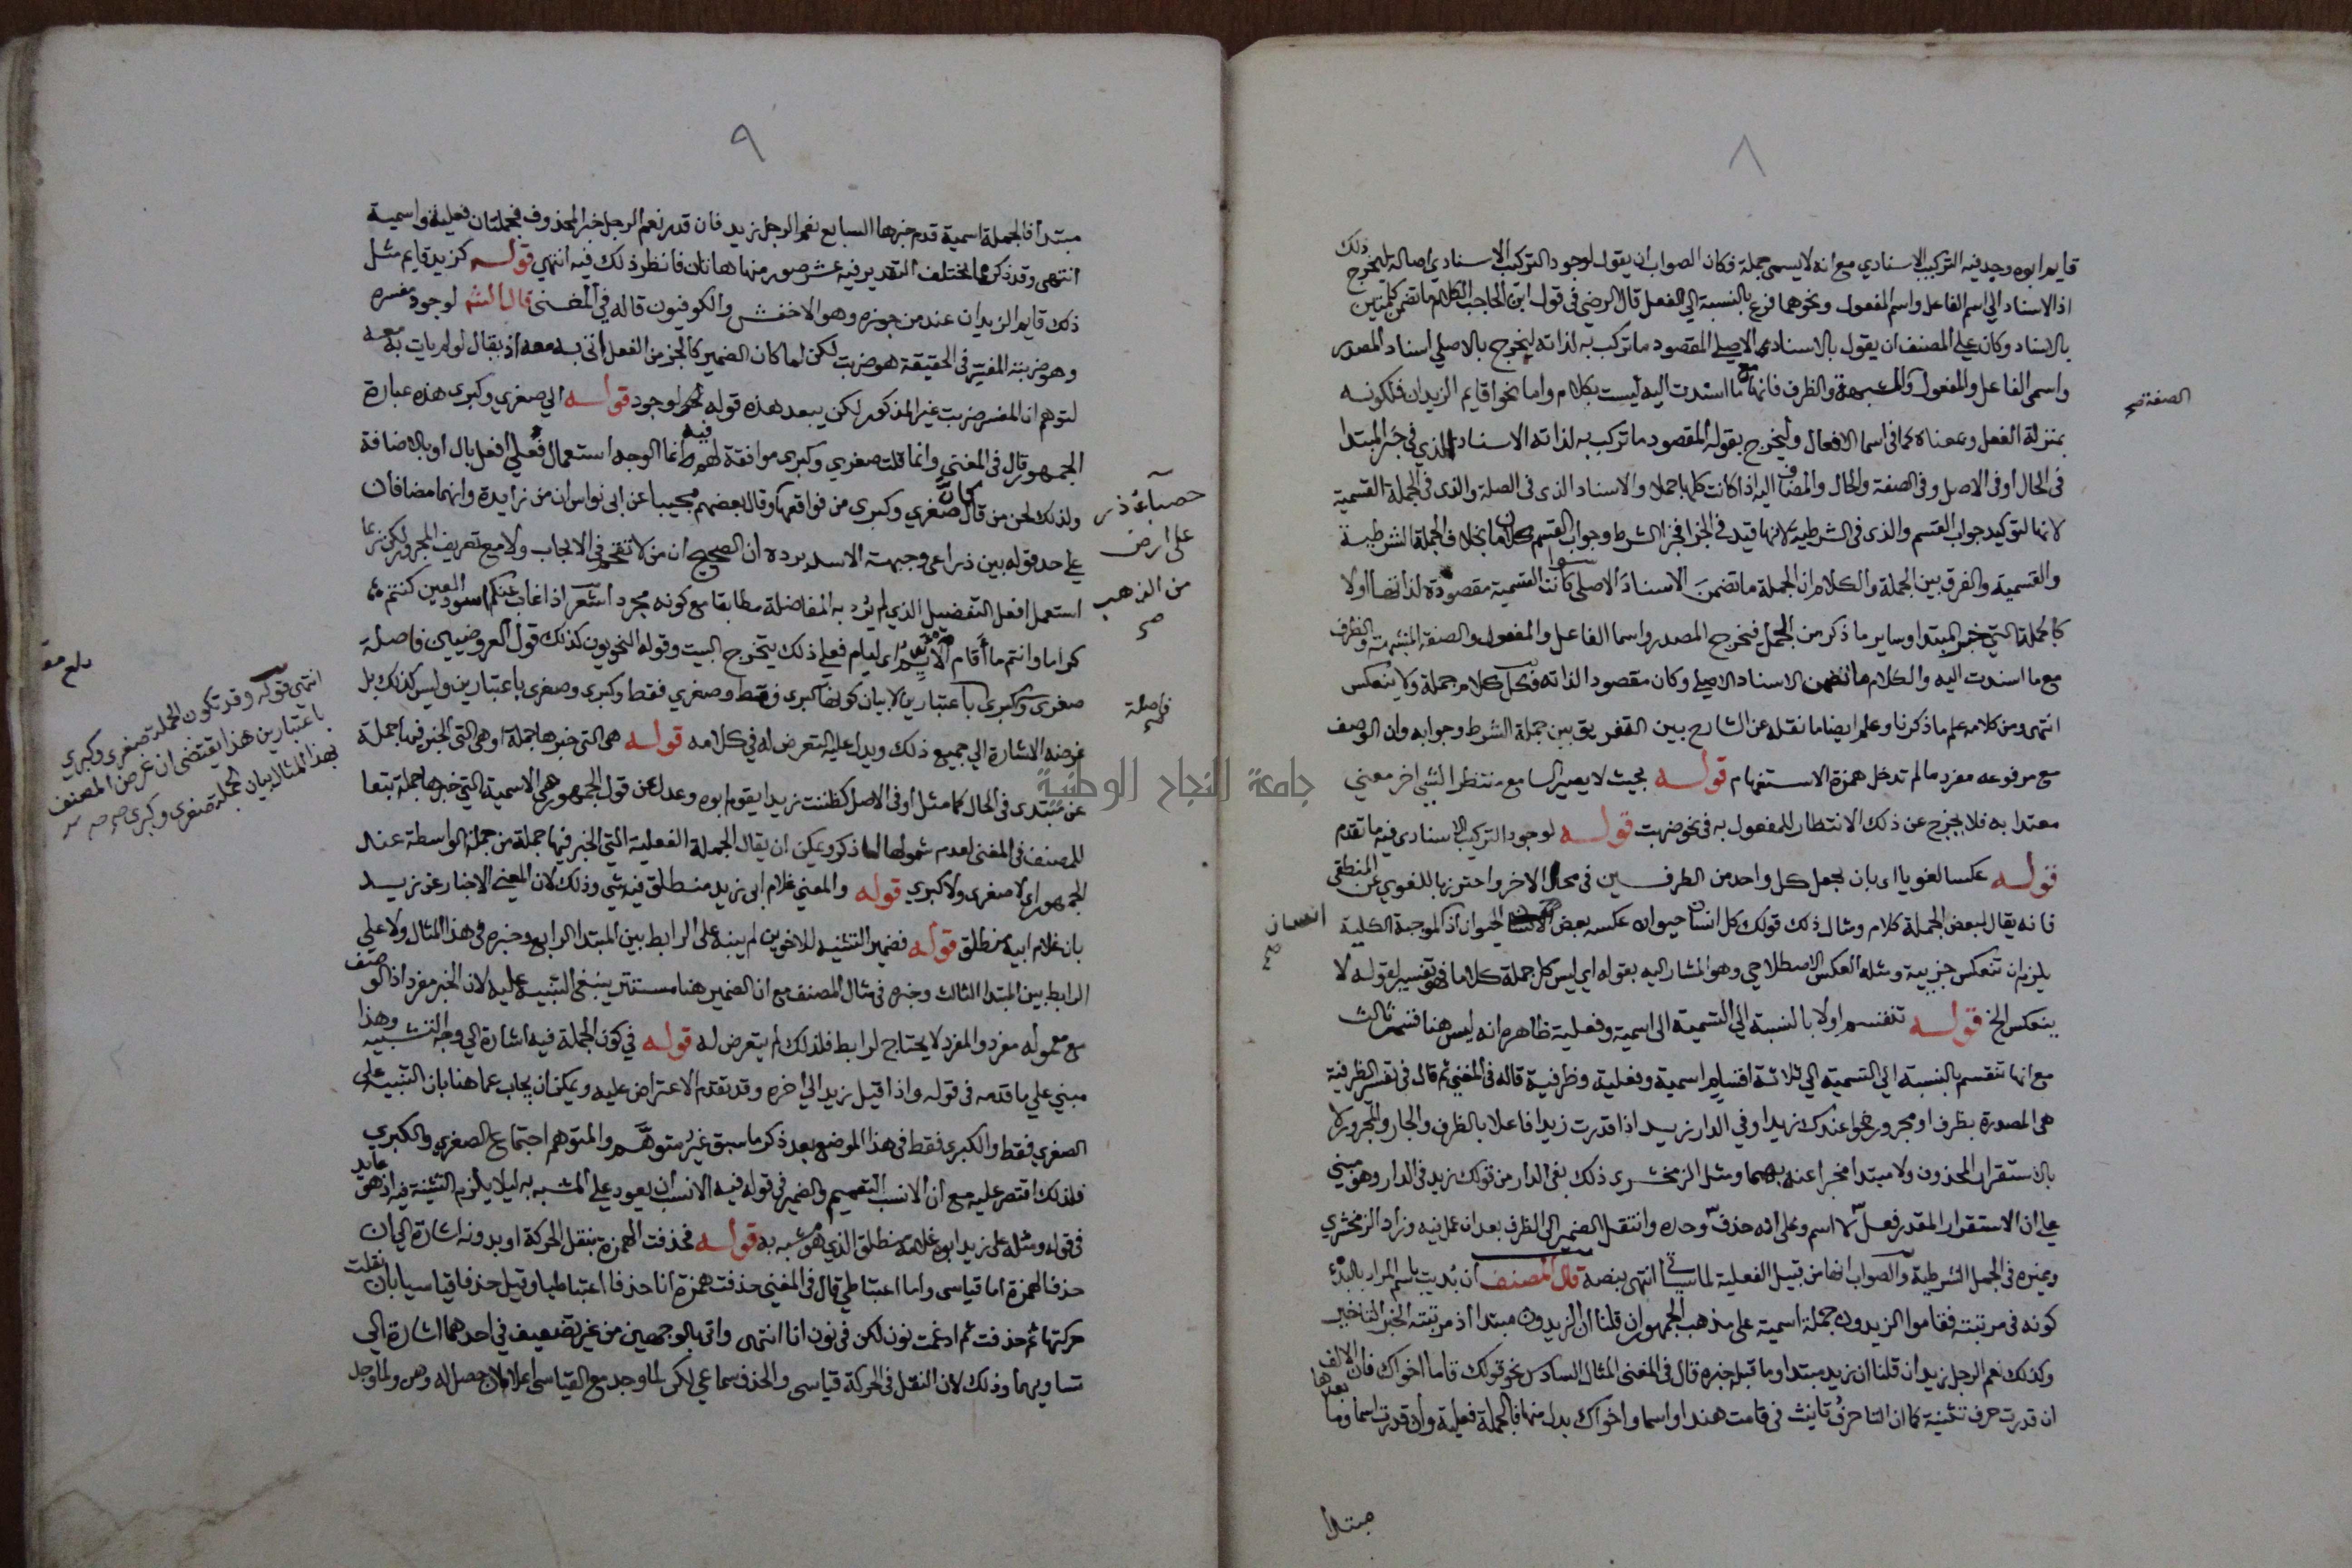 ٨
قايم ابوه وجد فيه التركيب الاسنادي مع انه لا يسمى جملة فكان الصواب ان يقول لوجود التركيب الاسنادي اصالة ليخرج ذلك
اذ الاسناد الي اسم الفاعل واسم المفعول ونحوهما فرع بالنسبة الي الفعل قال الرضي في قول ابن الحاجب الكلام ما تضمن كلمتين
بالاسناد وكان على المصنف ان يقول بالاسناد الاصلي المقصود ما تركب به لذاته ليخرج بالاصلي اسناد المصدر
واسمى الفاعل والمفعول والمشبهة والظرف فانها مع ما اسندت اليه ليست بكلام واما نحو اقايم الزيدان فلكونه
الصفة صح
بمنزلة الفعل وبمعناه كما في اسما الافعال وليخرج بقوله المقصود ما تركب به لذاته الاسناد الذي في خبر المبتدا
في الحال او في الاصل وفي الصفة والحال والمضاف اليه اذا كانت كلها جملا والاسناد الذي في الصلة والذي في الجملة القسمية
لانها لتوكيد جواب القسم والذي في الشرطية لانها قيد في الجزا فجزا الشرط وجواب القسم كلامان بخلاف الجملة الشرطية
والقسمية والفرق بين الجملة والكلام ان الجملة ما تضمن الاسناد الاصلي سوا كانت مقصودة لذاتها او لا
كالجملة التي خبر المبتدا وساير ما ذكر من الجمل فيخرج المصدر واسما الفاعل والمفعول والصفة المشبهة والظرف
مع ما اسندت اليه والكلام ما تضمن الاسناد الاصلي وكان مقصودا لذاته فكل كلام جملة ولا ينعكس
انتهى ومن كلامه علم ما ذكرنا وعلم ايضا ما نقله عن الشارح بين التفريق بين جملة الشرط وجوابه وان الوصف
مع مرفوعه مفرد ما لم تدخل همزة الاستفهام قوله بحيث لا يصير السامع منتظرا لشي اخر معني
معتدا به فلا يخرج عن ذلك الانتظار للمفعول به في نحو ضربت قوله لوجود التركيب الاسنادي فيه ما تقدم
قوله عكسا لغويا اى بان يجعل كل واحد من الطرفين في محل الاخر واحترز بها للغوي عن المنطقي
فانه يقال لبعض الجملة كلام ومثال ذلك قولك كل انسان حيوان عكسه بعض الحيوان اذ الموجبة الكلية
انسان صح
يلزم ان تنعكس جزيية ومثله العكس الاصطلاحي وهو المشار اليه بقوله اي ليس كل جملة كلاما فهو تفسير لقوله لا
ينعكس الخ قوله تنقسم اولا بالنسبة الي التسمية الى اسمية وفعلية ظاهره انه ليس هنا قسم ثالث
مع انها تنقسم بالنسبة الي التسمية الي ثلاثة اقسام اسمية وفعلية وظرفية قاله في المغني ثم قال في تفسير الظرفية
هى المصدرة بظرف او مجرور نحو اعندك زيد او في الدار زيد اذا قدرت زيدا فاعلا بالظرف والجار والمجرور لا
بالاستقرار المحذوف ولا مبتدا مخبرا عنه بهما ومثل الزمخشري ذلك بفي الدار من قولك زيد في الدار وهو مبني
على ان الاستقرار المقدر فعل لا اسم وعلى انه حذف وحده وانتقل الضمير الى الظرف بعد ان عمل فيه وزاد الزمخشري
وغيره في الجمل الشرطية والصواب انها من قبيل الفعلية لما سياتي انتهى بنصه قال المصنف ان بديت باسم المراد بالبدء
كونه في مرتبته فقاموا الزيدون جملة اسمية على مذهب الجمهور ان قلنا ان الزيدون مبتدا اذ مرتبته الخبر التاخير
وكذلك نعم الرجل زيد ان قلنا ان زيد مبتدا وما قبله خبره قال في المغنى المثال السادس نحو قولك قاما اخواك فان الالف
ان قدرت حرف تثنية كما ان التا حرف تانيث في قامت هند او اسما واخواك بدل منها فالجملة فعلية وان قدرت اسما وما بعدها
مبتدا
٩
مبتدا فالجملة اسمية قدم خبرها السابع نعم الرجل زيد فان قدر نعم الرجل خبرا لمحذوف فجملتان فعلية واسمية
انتهى وقد ذكر مما يختلف التقدير فيه عشر صور منها هاتان فانظر ذلك فيه انتهي قوله كزيد قايم مثل
ذلك قايم الزيدان عند من جوزه وهو الاخفش والكوفيون قاله في المغنى قال الش لوجود مفسره
وهو ضربته المفسر في الحقيقة هو ضربت لكن لما كان الضمير كالجزء من الفعل اتى به معه اذ يقال لو لم يات به معه
لتوهم ان المفسر ضربت غير المذكور لكن يبعد هذه قوله لوجود قوله الي صغري وكبرى هذه عبارة
الجمهور قال في المغني وانما قلت صغري وكبرى موافقة لهم وانما الوجه استعمال فعلي افعل بال او بالاضافة
ولذلك لحن من قال كان صغري وكبرى من فواقعها وقال بعضهم مجيبا عن ابي نواس ان من زايدة وانهما مضافان
حصباء در
على ارض
من الذهب
صح
على حد قوله بين ذراعى وجبهة الاسد يرده ان الصحيح ان من لا تقحم في الايجاب ولا مع تعريف المجرور لكن ربما
استعمل افعل التفضيل الذي لم يرد به المفاضلة مطابقا مع كونه مجردا شعر اذا غاب عنكم اسود العين كنتم
كراما وانتم ما اقام الايم اى ليام فعلي ذلك يتخرج البيت وقوله النحويون كذلك قول العروضيين فاصلة
صغرى وكبرى باعتبارين لا بيان كونها كبرى فقط وصغري فقط وكبرى وصغرى باعتبارين وليس كذلك بل
فاصلة
غرضه الاشارة الي جميع ذلك ويدل عليه التعرض له في كلامه قوله هى التى خبرها جملة اوهى التى الخبر فيها جملة
عن مبتدى في الحال كما مثل او في الاصل كظننت زيدا يقوم ابوه وعدل عن قول الجمهور هي الاسمية التي خبرها جملة تبعا
للمصنف في المغني لعدم شمولها لما ذكر ويمكن ان يقال الجملة الفعلية التي الخبر فيها جملة من جملة الواسطة عند
الجمهور اى لا صغرى ولا كبري قوله والمعني غلام ابى زيد منطلق فيه شي وذلك لان المعني الاخبار عن زيد
بان غلام ابيه منطلق قوله فضمير التثنيه للاخوين لم ينبه على الرابط بين المبتدا الرابع وخبره في هذا المثال ولا علي
الرابط بين المبتدا الثالث وخبره في مثال المصنف مع ان الضمير هنا مستتر ينبغي التنبيه عليه لان الخبر مفرد اذ الوصف
مع معموله مفرد والمفرد لا يحتاج لرابط فلذلك لم يتعرض له قوله في كون الجملة فيه اشارة الي وجه التشبيه وهذا
مبني علي ما قدمه في قوله واذا قيل زيد الي اخره وقد تقدم الاعتراض عليه ويمكن ان يجاب عما هنا بان التنبيه على
الصغري فقط والكبرى فقط في هذا الموضع بعد ذكر ما سبق غير متوهم والمتوهم اجتماع الصغري والكبري
فلذلك اقتصر عليه مع ان الانسب التعميم والضمير في قوله فيه الانسب ان يعود علي المشبه به ليلا يلزم التثنية فيه اذ هو عايد
في قوله ومثله على زيد ابوه غلامه منطلق الذي هو مشبه به قوله فحذفت الهمزة بنقل الحركة او بدونه اشارة الي ان
حذف الهمزة اما قياسى واما اعتباطي قال في المغني حذفت همزة انا حذفا اعتباطيا وقيل حذفا قياسيا بان نقلت
حركتها ثم حذفت ثم ادغمت نون لكن في نون انا انتهى واتى بالوجهين من غير تضعيف في احدهما اشارة الي
تساويهما وذلك لان النقل في الحركة قياسى والحذف سماعي لكن لما وجد مع القياسى اعلالان حصل له وهن ولما وجد
انتهى قوله وقد تكون الجملة صغرى وكبري
باعتبارين هذا يقتضى ان غرض المصنف
بهذا المثال بيان جملة صغري وكبرى صح صح
جامعة النجاح الوطنية